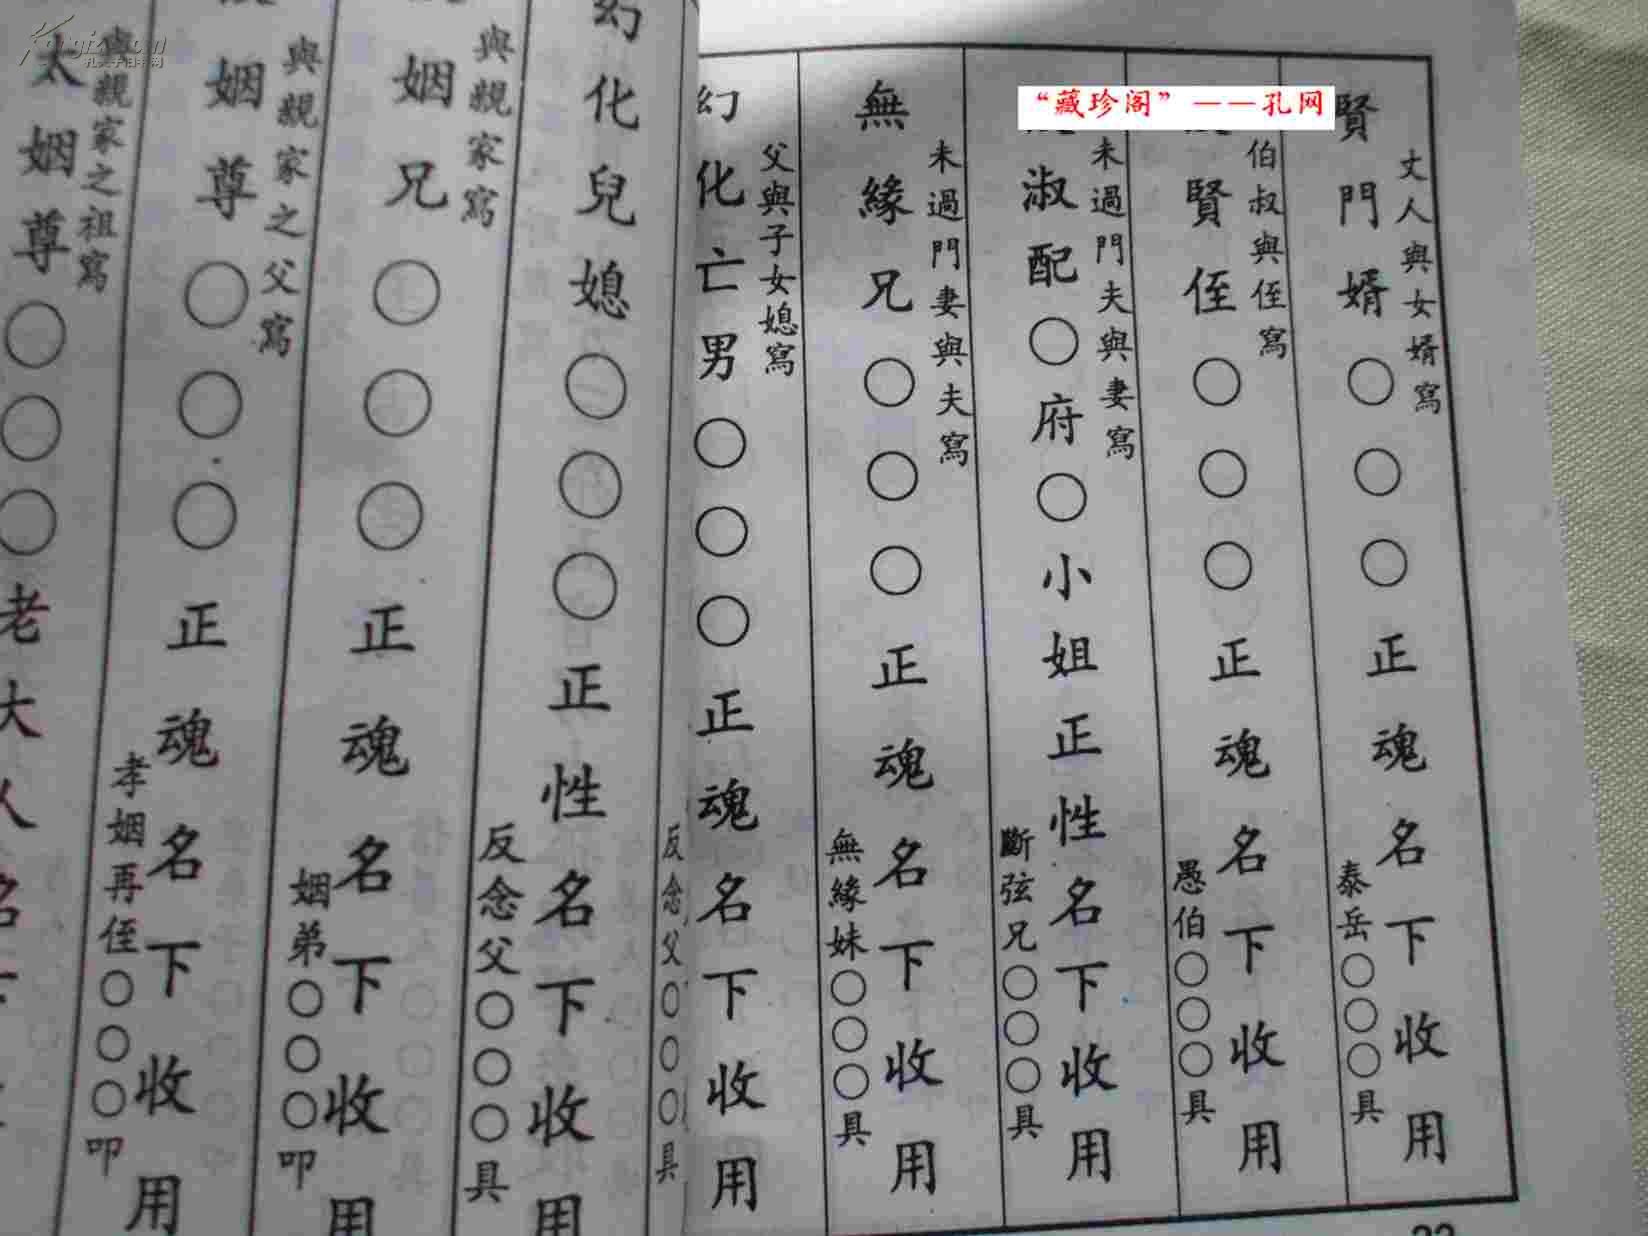 “藏珍阁”——孔网
賢門婿○○○正魂名下收用
丈人與女婿寫
泰岳○○○具
賢侄○○○正魂名下收用
伯叔與侄寫
愚伯○○○具
淑配○府○小姐正性名下收用
未過門夫與妻寫
斷弦兄○○○具
無緣兄○○○正魂名下收用
未過門妻與夫寫
無緣妹○○○具
幻化亡男○○○正魂名下收用
父與子女媳寫
反念父○○○具
幻化兒媳○○○正性名下收用
反念父○○○具
姻兄○○○正魂名下收用
與親家寫
姻弟○○○叩
姻尊○○○正魂名下收用
與親家之父寫
孝姻再侄○○○叩
太姻尊○○○老大人名下
與親家之祖寫